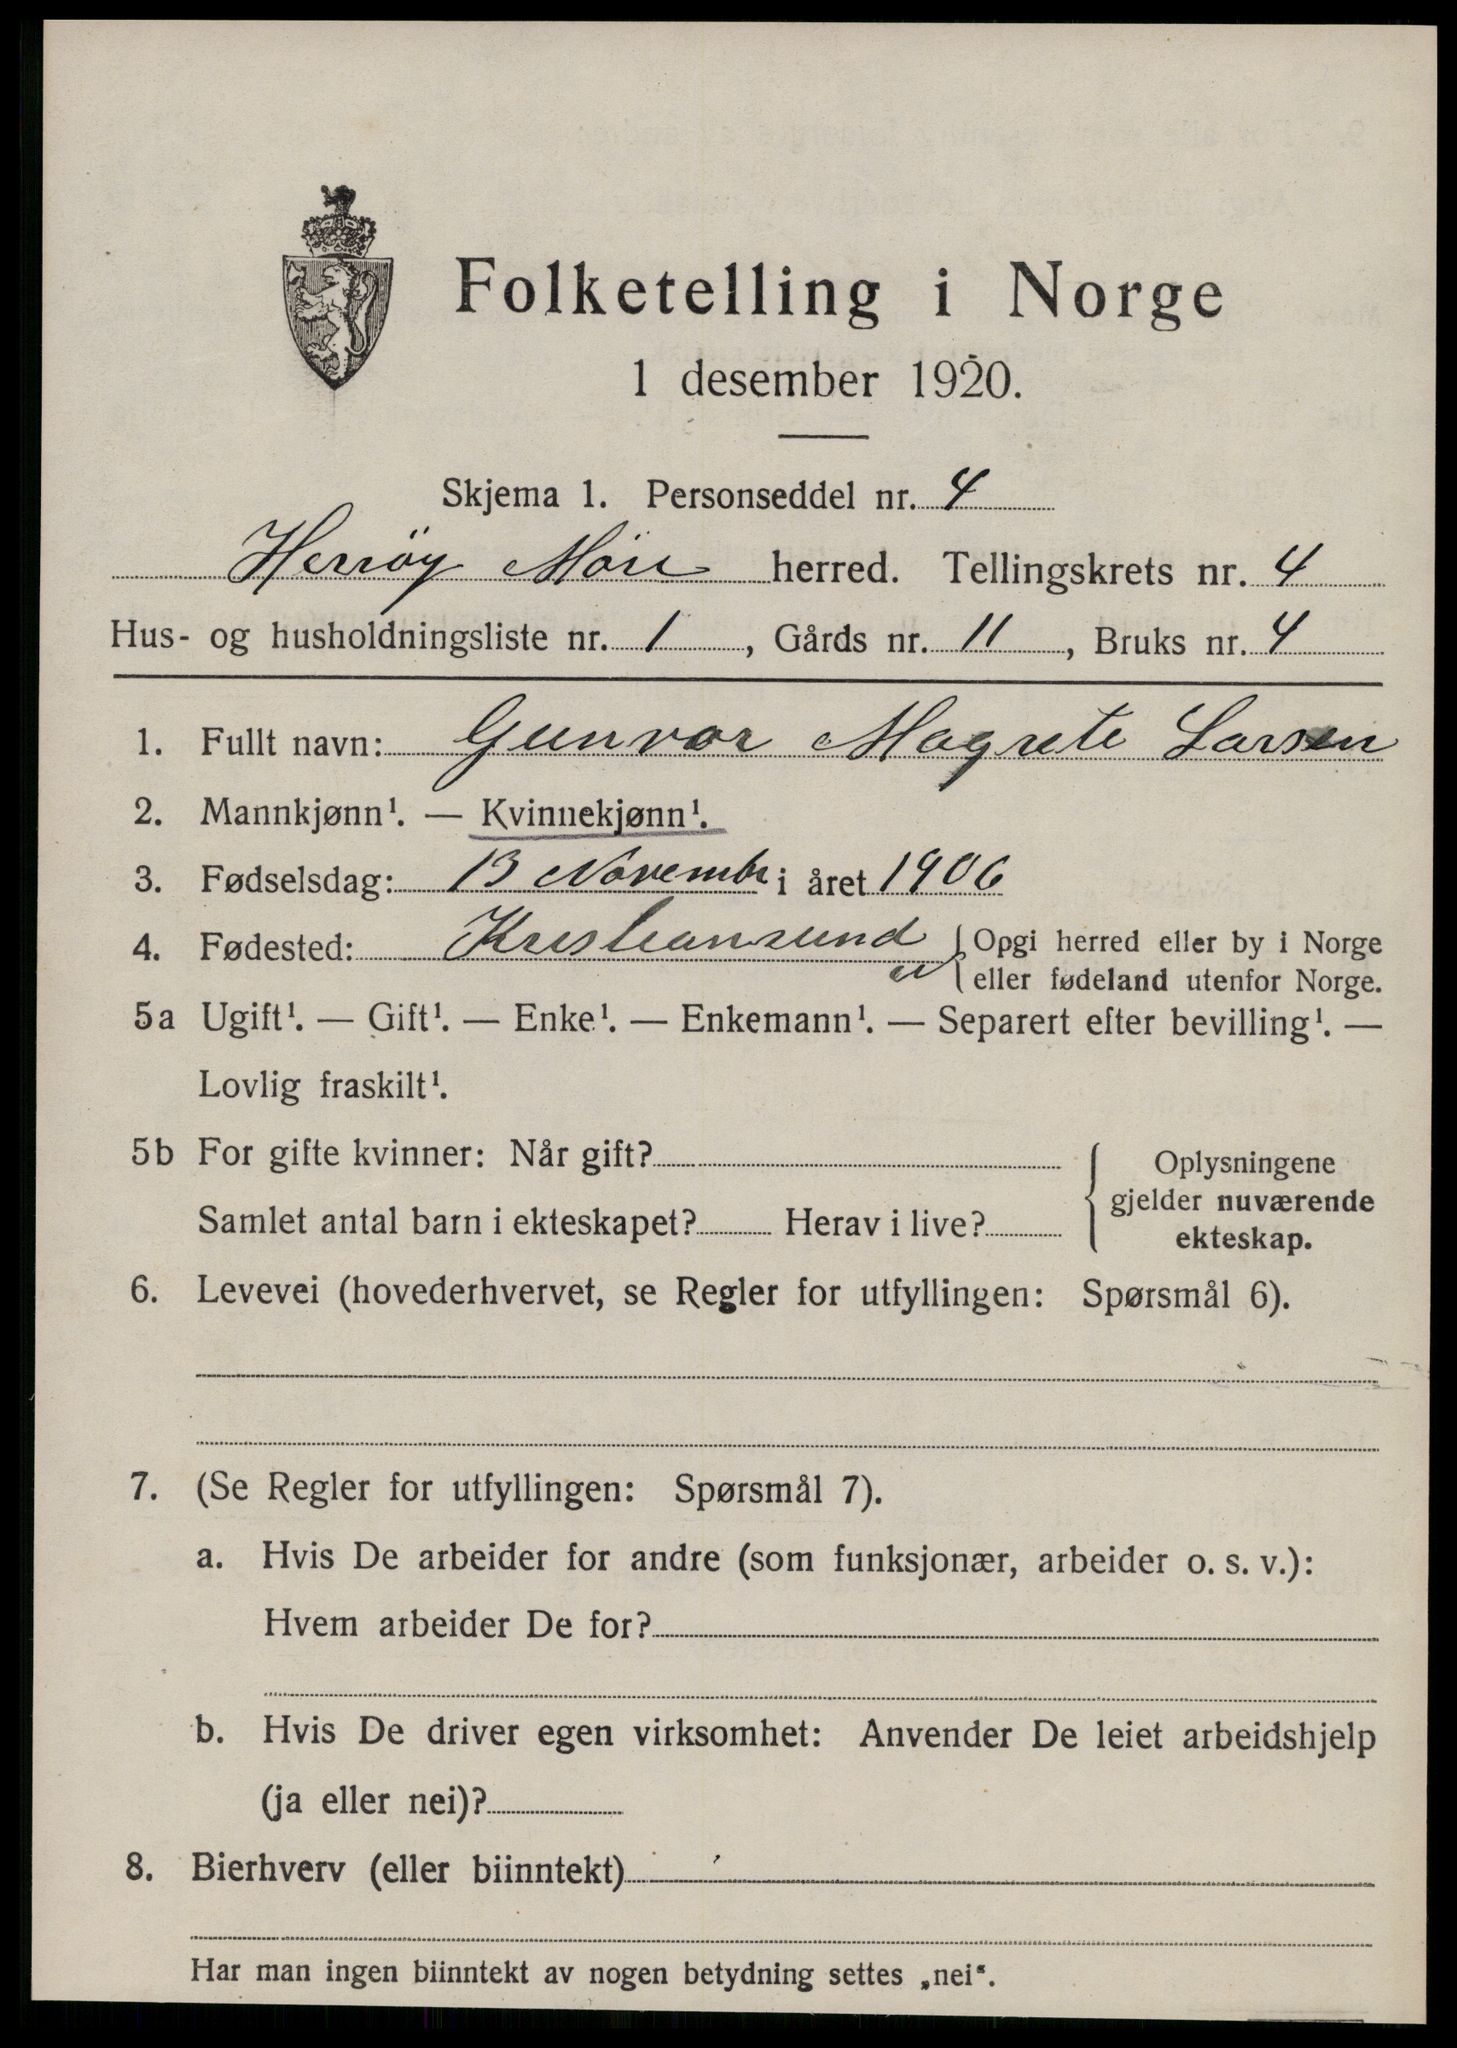 Folketelling i Norge
1 desember 1920.
Skjema 1. Personseddel nr. 4
Herröy Möre herred. Tellingskrets nr. 4
Hus- og husholdningsliste nr. 1, Gårds nr. 11, Bruks nr. 4
1. Fullt navn: Gunvor Magrete Larsen
2. Mannkjønn¹. — Kvinnekjønn¹.
3. Fødselsdag: 13 Novembr i året 1906
4. Fødested: Kristiansund N { Opgi herred eller by i Norge
eller fødeland utenfor Norge.
5a Ugift¹. — Gift¹. — Enke¹. — Enkemann¹. — Separert efter bevilling¹. —
Lovlig fraskilt¹.
5b For gifte kvinner: Når gift?
Samlet antal barn i ekteskapet? Herav i live?
{ Oplysningene
gjelder nuværende
ekteskap.
6. Levevei (hovederhvervet, se Regler for utfyllingen: Spørsmål 6).
7. (Se Regler for utfyllingen: Spørsmål 7).
a. Hvis De arbeider for andre (som funksjonær, arbeider o. s. v.):
Hvem arbeider De for?
b. Hvis De driver egen virksomhet: Anvender De leiet arbeidshjelp
(ja eller nei)?
8. Bierhverv (eller biinntekt)
Har man ingen biinntekt av nogen betydning settes „nei“.